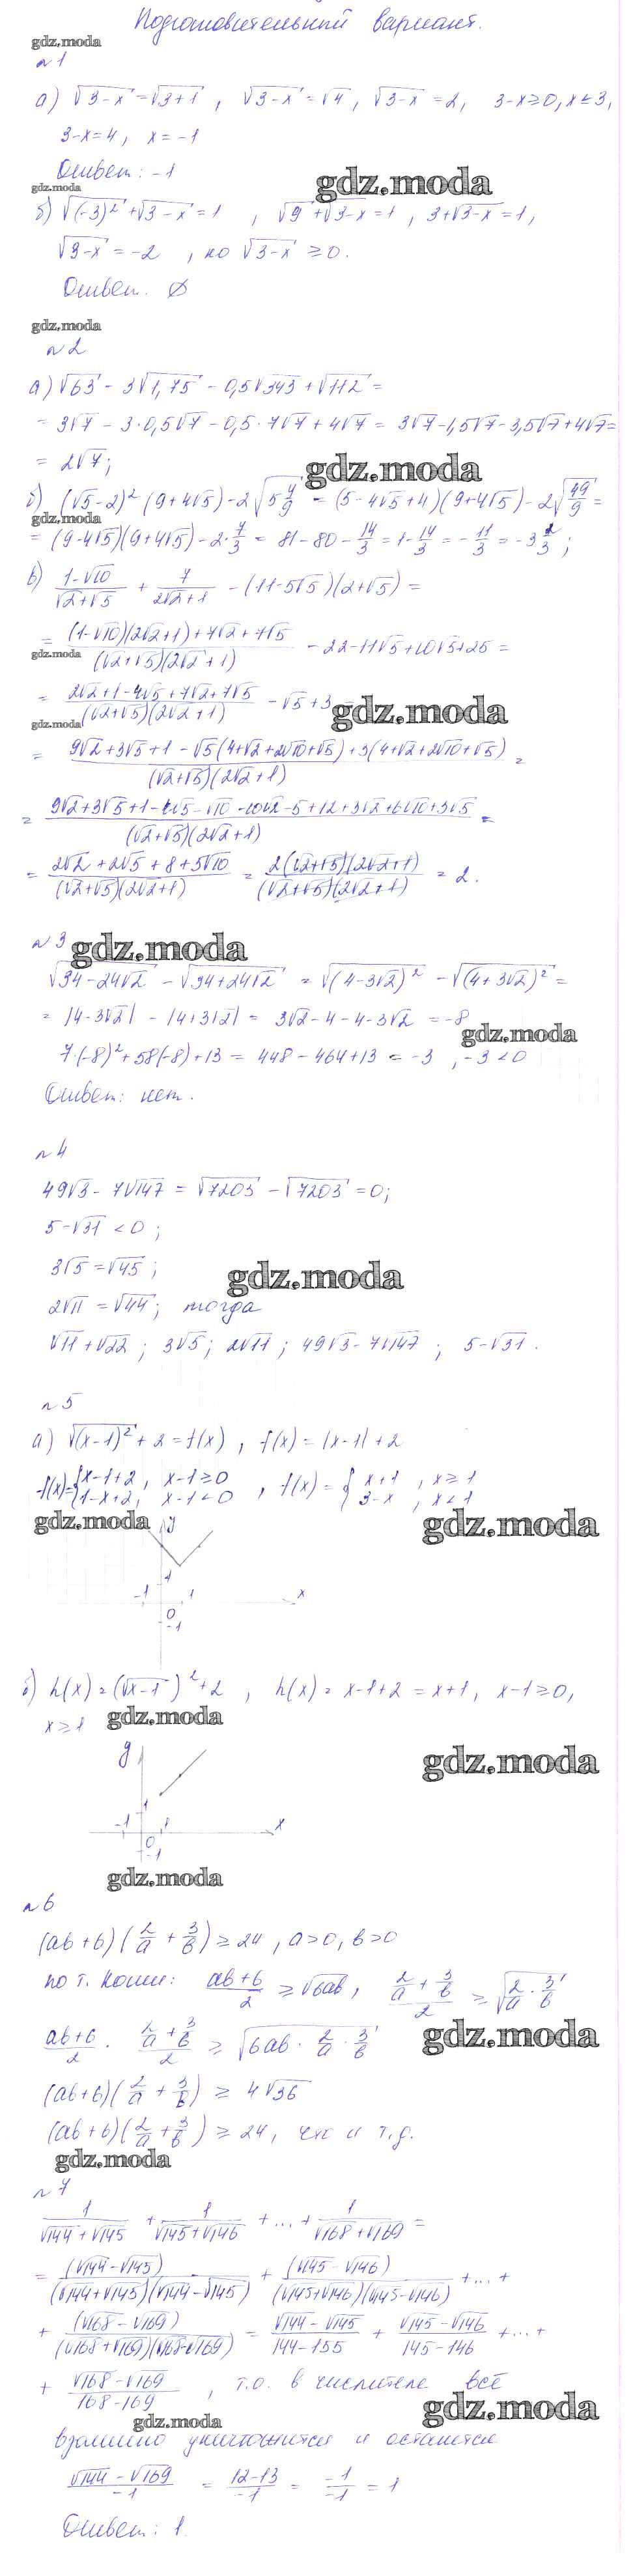 Подготовительный вариант.
gdz.moda
№1
а) √(3-x) = √(3+1) , √(3-x) = √4 , √(3-x) = 2, 3-x≥0, x≤3,
3-x=4, x=-1
Ответ: -1
gdz.moda
gdz.moda
б) √((-3)²) + √(3-x) = 1 , √9 + √(3-x) = 1 , 3+√(3-x) = 1,
√(3-x) = -2 , но √(3-x) ≥ 0.
Ответ. ∅
gdz.moda
№2
а) √63 - 3√1,75 - 0,5√343 + √112 =
= 3√7 - 3·0,5√7 - 0,5·7√7 + 4√7 = 3√7 - 1,5√7 - 3,5√7 + 4√7 =
= 2√7;
gdz.moda
б) (√5-2)² (9+4√5) - 2√(5 4/9) = (5-4√5+4)(9+4√5) - 2√(49/9) =
gdz.moda
= (9-4√5)(9+4√5) - 2·7/3 = 81-80-14/3 = 1-14/3 = -11/3 = -3 2/3 ;
в) (1-√10)/(√2+√5) + 7/(2√2+1) - (11-5√5)(2+√5) =
= ((1-√10)(2√2+1)+7√2+7√5)/((√2+√5)(2√2+1)) - 22-11√5+10√5+25 =
gdz.moda
= (2√2+1-4√5+7√2+7√5)/((√2+√5)(2√2+1)) - √5+3
gdz.moda
gdz.moda
= (9√2+3√5+1-√5(4+√2+2√10+√5)+3(4+√2+2√10+√5))/((√2+√5)(2√2+1)) =
= (9√2+3√5+1-4√5-√10-10√2-5+12+3√2+6√10+3√5)/((√2+√5)(2√2+1)) =
= (2√2+2√5+8+5√10)/((√2+√5)(2√2+1)) = (2(√2+√5)(2√2+1))/((√2+√5)(2√2+1)) = 2.
№3
gdz.moda
√(34-24√2) - √(34+24√2) = √((4-3√2)²) - √((4+3√2)²) =
= |4-3√2| - |4+3√2| = 3√2-4-4-3√2 = -8
gdz.moda
7·(-8)²+58(-8)+13 = 448-464+13 = -3 , -3<0
Ответ: нет.
№4
49√3 - 7√147 = √7203 - √7203 = 0;
5-√31 < 0 ;
3√5 = √45 ;
gdz.moda
2√11 = √44 ; тогда
√11+√22 ; 3√5; 2√11 ; 49√3-7√147 ; 5-√31 .
№5
а) √((x-1)²) + 2 = f(x) , f(x) = |x-1|+2
f(x)={x-1+2, x-1≥0 , f(x) = { x+1 , x≥1
{1-x+2, x-1<0 3-x , x<1
gdz.moda
gdz.moda
y
1
-1 1 x
0
-1
б) h(x) = (√(x-1))²+2 , h(x) = x-1+2 = x+1, x-1≥0,
x≥1
gdz.moda
gdz.moda
y
1
-1 1 x
0
-1
gdz.moda
№6
(ab+6)(2/a + 3/b) ≥ 24 , a>0, b>0
по т. Коши: (ab+6)/2 ≥ √6ab, (2/a + 3/b)/2 ≥ √(2/a · 3/b)
(ab+6)/2 · (2/a + 3/b)/2 ≥ √(6ab · 2/a · 3/b)
gdz.moda
(ab+6)(2/a + 3/b) ≥ 4√36
(ab+6)(2/a + 3/b) ≥ 24, что и т.д.
gdz.moda
№7
1/(√144+√145) + 1/(√145+√146) + ... + 1/(√168+√169) =
= (√144-√145)/((√144+√145)(√144-√145)) + (√145-√146)/((√145+√146)(√145-√146)) + ... +
+ (√168-√169)/((√168+√169)(√168-√169)) = (√144-√145)/(144-155) + (√145-√146)/(145-146) + ... +
+ (√168-√169)/(168-169) , т.о. в числителе всё
gdz.moda
gdz.moda
взаимно уничтожится и останется
(√144-√169)/-1 = (12-13)/-1 = -1/-1 = 1
Ответ: 1